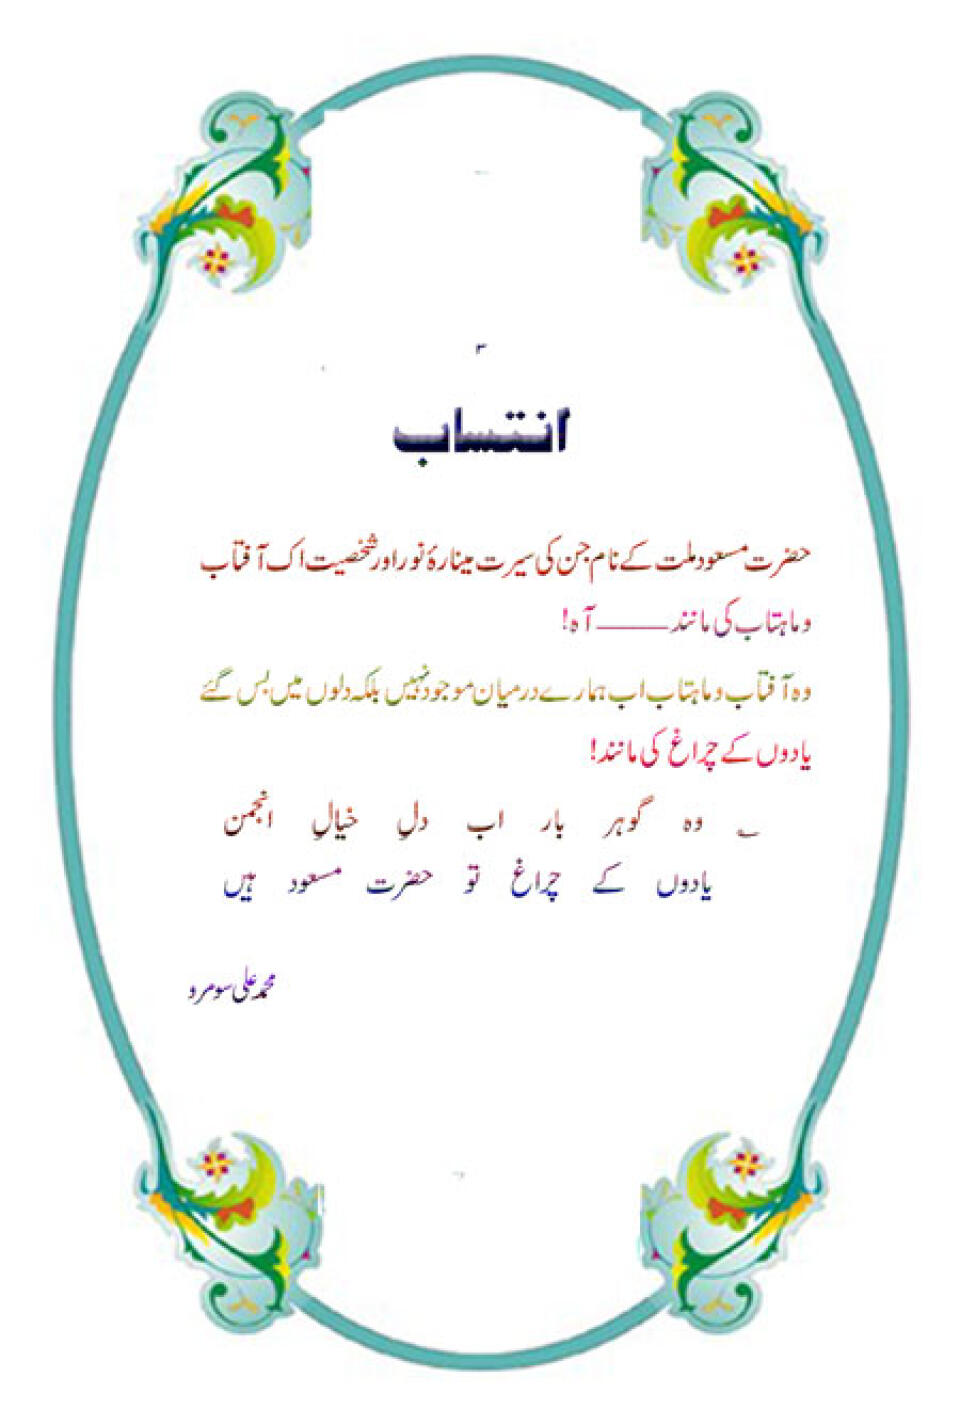 ۳
انتساب
حضرت مسعود ملت کے نام جن کی سیرت مینارۂ نور اور شخصیت اک آفتاب
وماہتاب کی مانند ——— آہ!
وہ آفتاب وماہتاب اب ہمارے درمیان موجود نہیں بلکہ دلوں میں بس گئے
یادوں کے چراغ کی مانند!
؎ وہ گوہر بار اب دلِ خیالِ انجمن
یادوں کے چراغ تو حضرت مسعود ہیں
محمد علی سومرو